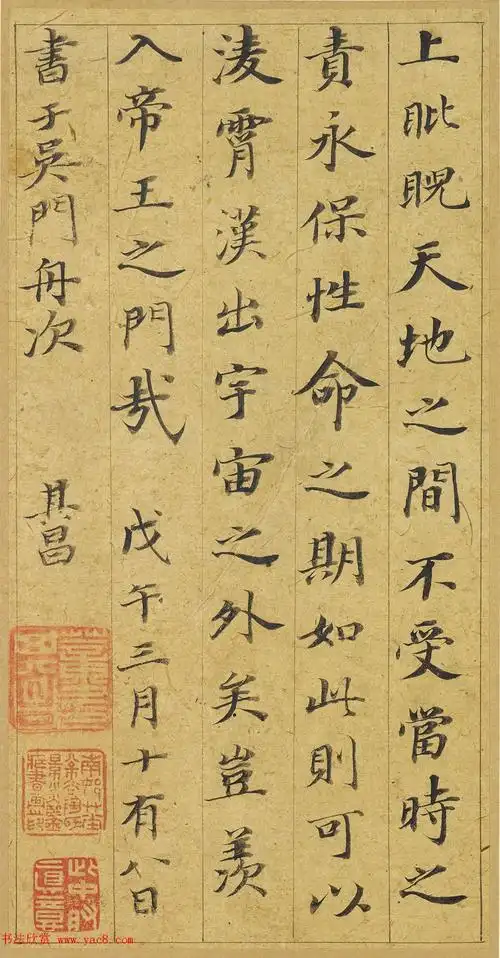 上毗睨天地之間不受當時之
責永保性命之期如此則可以
淩霄漢出宇宙之外矣豈羨
入帝王之門哉 戊午三月十有八日
書于吳門舟次 其昌
书法欣赏 www.yac8.com